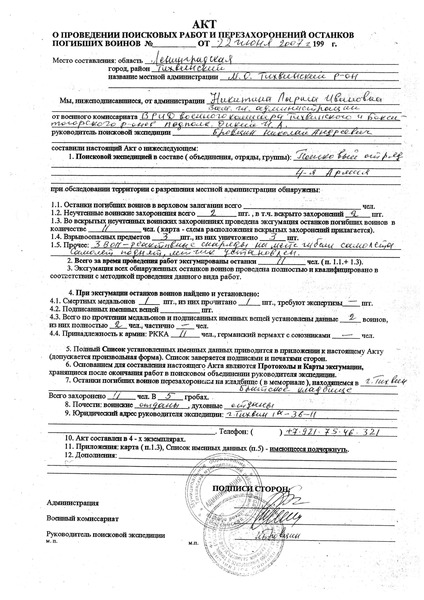 АКТ
О ПРОВЕДЕНИИ ПОИСКОВЫХ РАБОТ И ПЕРЕЗАХОРОНЕНИЙ ОСТАНКОВ
ПОГИБШИХ ВОИНОВ № ОТ 22 июня 2007 г 199 г.
Место составления: область Ленинградская
город, район Тихвинский
название местной администрации М.О. Тихвинский р-он
Мы, нижеподписавшиеся, от администрации Никитина Ивановна
Зам. гл. администрации
от военного комиссариата ВРИО военного комиссара Тихвинского и Бокси-
тогорского р-онов подполк.
руководитель поисковой экспедиции Николай Андреевич
составили настоящий Акт о нижеследующем:
1. Поисковой экспедицией в составе ( объединения, отряды, группы): Поисковый отряд
4-я Армия
при обследовании территории с разрешения местной администрации обнаружены:
1.1. Останки погибших воинов в верховом залегании всего чел.
1.2. Неучтенные воинские захоронения всего 2 шт., в т.ч. вскрыто захоронений 2 шт.
1.3. Во вскрытых неучтенных воинских захоронениях проведена эксгумация останков погибших воинов в
количестве 11 чел. (карта - схема расположения вскрытых захоронений прилагается).
1.4. Взрывоопасных предметов 3 шт, из них уничтожено 3 шт.
1.5. Прочее: 3 ВОП-реактивные снаряды на месте гибели самолёта
самолет поднят, летчик установлен.
2. Всего за время проведения работ эксгумированы останки 11 чел. (п. 1.1.+ 1.3).
3. Эксгумация всех обнаруженных останков проведена полностью и квалифицировано в
соответствии с методикой проведения данного вида работ.
4. При эксгумации останков воинов найдено и установлено:
4.1. Смертных медальонов 1 шт., из них прочитано 1 шт., требуют экспертизы — шт.
4.2. Подписанных именных вещей шт.
4.3. Всего по прочтении медальонов и подписанных именных вещей установлены данные 2 воинов,
из них полностью 2 чел., частично — чел.
4.4. Принадлежность к армии: РККА 11 чел., германский вермахт с союзниками — чел.
5. Полный Список установленных именных данных приводится в приложении к настоящему Акту
(допускается произвольная форма). Список заверяется подписями и печатями сторон.
6. Основанием для составления настоящего Акта являются Протоколы и Карты эксгумации,
хранящиеся после окончания работ в поисковом объединении руководителя экспедиции.
7. Останки погибших воинов перезахоронены на кладбище ( в мемориале ), находящемся в г. Тихвин
воинское кладбище
Всего захоронено 11 чел. В 5 гробах.
8. Почести: воинские отданы, духовные отданы
9. Юридический адрес руководителя экспедиции: г. Тихвин
Телефон: ( ) +7-921-75-46-321
10. Акт составлен в 4 - х экземплярах.
11. Приложения: карта (п.1.3), Список именных данных (п.5) - имеющееся подчеркнуть.
12. Дополнения:
ПОДПИСИ СТОРОН:
Администрация
Военный комиссариат
Руководитель поисковой экспедиции
м.п. м.п.